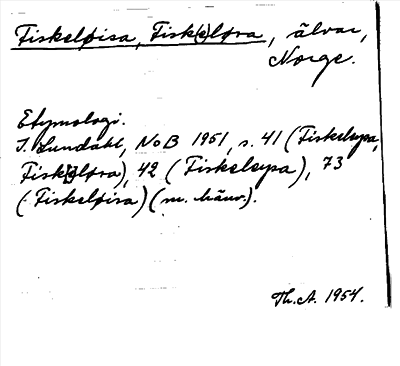 Fiskeløisa, Fisk(e)løra, älvar,
Norge.
Etymologi.
I. Lundahl, NoB 1951, s. 41 (Fiskeløysa,
Fisk[e]løra), 42 (Fiskeløysa), 73
(Fiskeløisa) (m. hänv.).
Th. A. 1954.